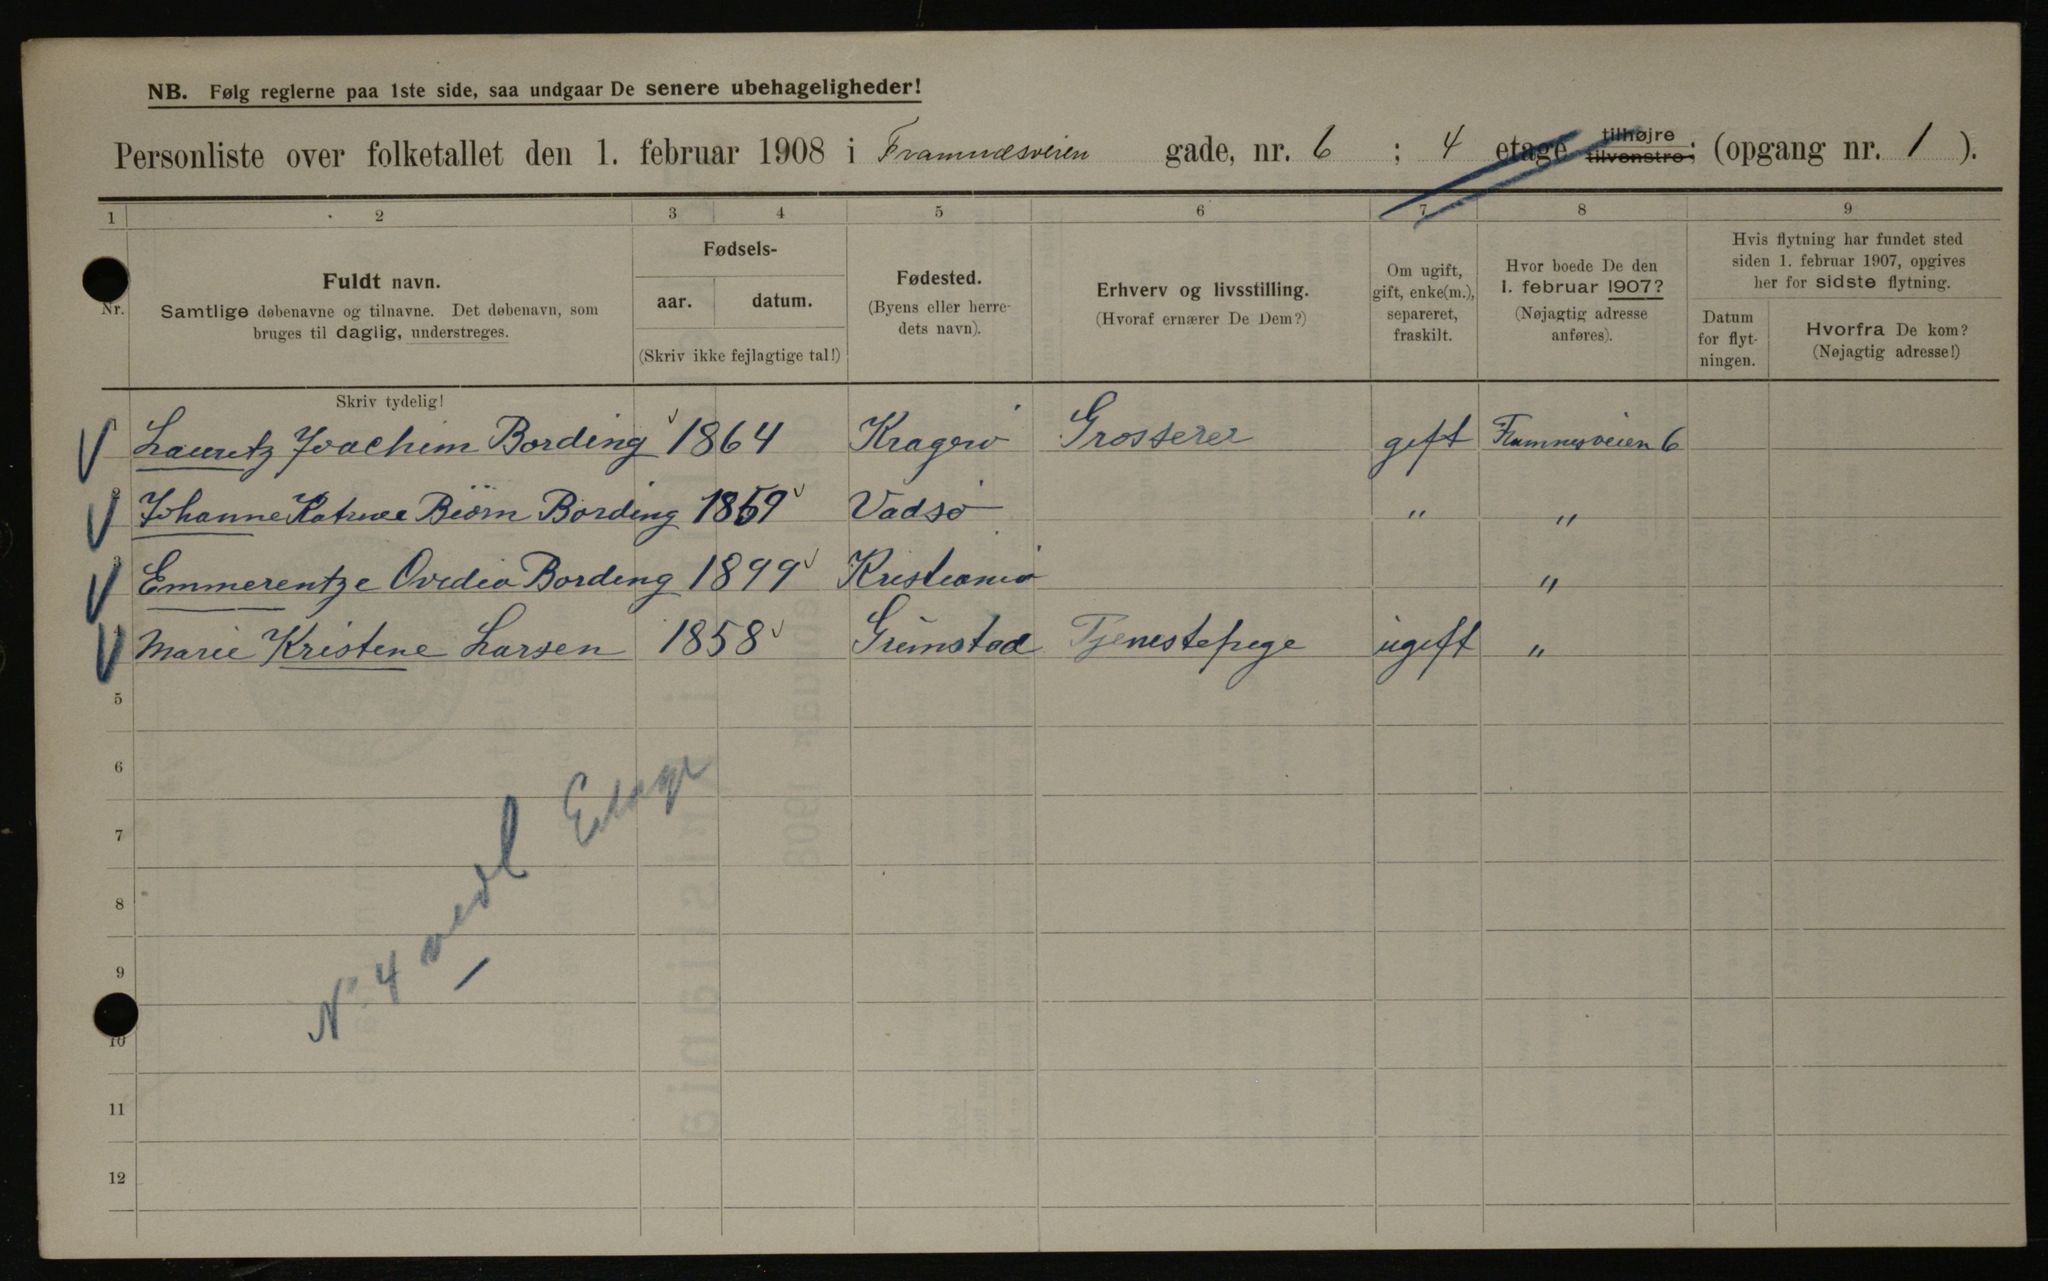 NB. Følg reglerne paa 1ste side, saa undgaar De senere ubehageligheder!
Personliste over folketallet den 1. februar 1908 i Framnæsveien gade, nr. 6 ; 4 etage tilhøjre tilvenstre; (opgang nr. 1 ).
1 2 3 4 5 6 7 8 9
Nr.
Fuldt navn.
Samtlige døbenavne og tilnavne. Det døbenavn, som
bruges til daglig, understreges.
Fødsels-
aar. datum.
(Skriv ikke fejlagtige tal!)
Fødested.
(Byens eller herre-
dets navn).
Erhverv og livsstilling.
(Hvoraf ernærer De Dem?)
Om ugift,
gift, enke(m.),
separeret,
fraskilt.
Hvor boede De den
1. februar 1907?
(Nøjagtig adresse
anføres).
Hvis flytning har fundet sted
siden 1. februar 1907, opgives
her for sidste flytning.
Datum
for flyt-
ningen.
Hvorfra De kom?
(Nøjagtig adresse!)
Skriv tydelig!
1 Lauritz Joachim Bording 1864 Kragerø Grosserer gift Framnesveien 6
2 Johanne Katrine Biørn Bording 1859 Vadsø " "
3 Emmerentze Ovidia Bording 1899 Kristiania "
Marie Kristine Larsen 1858 Grimstad Tjenestepige ugift "
5
6
7
8
9
10
11
12
No 4 nedl Etage